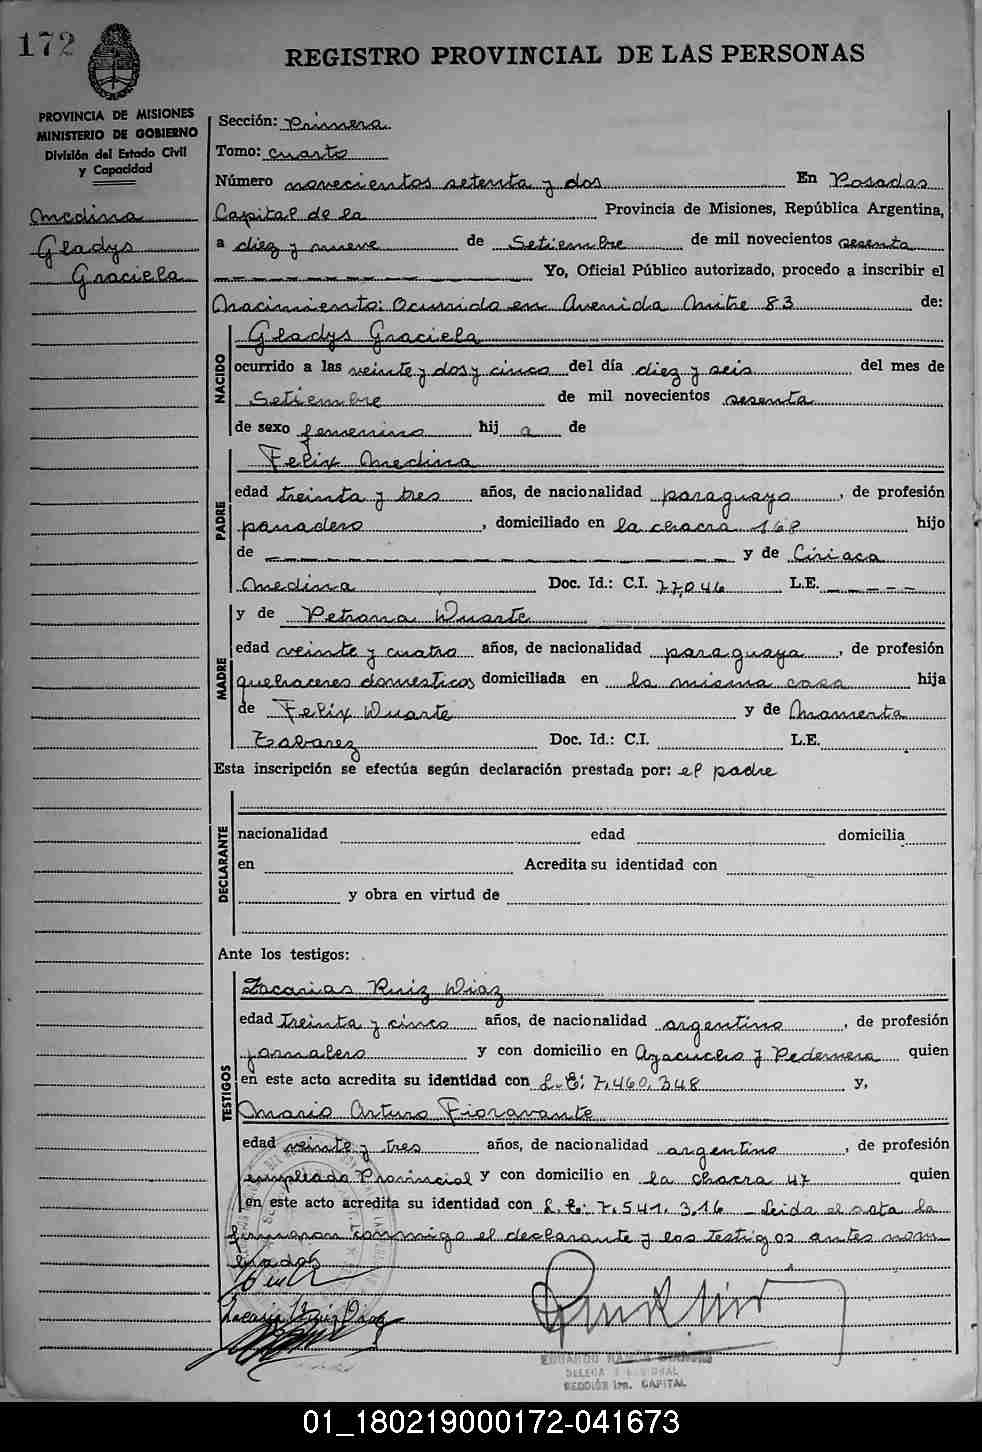 172
REGISTRO PROVINCIAL DE LAS PERSONAS
PROVINCIA DE MISIONES
MINISTERIO DE GOBIERNO
División del Estado Civil
y Capacidad
Medina
Gladys
Graciela
Sección: Primera
Tomo: cuarto
Número novecientos setenta y dos En Posadas
Capital de la Provincia de Misiones, República Argentina,
a diez y nueve de Setiembre de mil novecientos sesenta
Yo, Oficial Público autorizado, procedo a inscribir el
Nacimiento: Ocurrido en Avenida Mitre 83 de:
NACIDO
Gladys Graciela
ocurrido a las veinte y dos y cinco del día diez y seis del mes de
Setiembre de mil novecientos sesenta
de sexo femenino hij a de
PADRE
Felix Medina
edad treinta y tres años, de nacionalidad paraguayo, de profesión
panadero, domiciliado en la chacra 168 hijo
de y de Ciriaca
Medina Doc. Id.: C.I. 77,046 L.E.
y de Petrona Duarte
MADRE
edad veinte y cuatro años, de nacionalidad paraguaya, de profesión
quehaceres domésticos domiciliada en la misma casa hija
de Felix Duarte y de Mamerta
Tabarez Doc. Id.: C.I. L.E.
Esta inscripción se efectúa según declaración prestada por: el padre
DECLARANTE
nacionalidad edad domicilia
en Acredita su identidad con
y obra en virtud de
Ante los testigos:
TESTIGOS
Zacarias Ruiz Diaz
edad treinta y cinco años, de nacionalidad argentino, de profesión
jornalero y con domicilio en Ayacucho y Pedernera quien
en este acto acredita su identidad con L.E: 7,460,348 y,
Mario Arturo Fioravante
edad veinte y tres años, de nacionalidad argentino, de profesión
empleado Provincial y con domicilio en la chacra 47 quien
en este acto acredita su identidad con L.E: 7,541,316 - Leida el acta la
firmaron conmigo el declarante y los testigos antes nom
brados
Zacaria Ruiz Diaz
SECCIÓN 1ra. CAPITAL
01_180219000172-041673